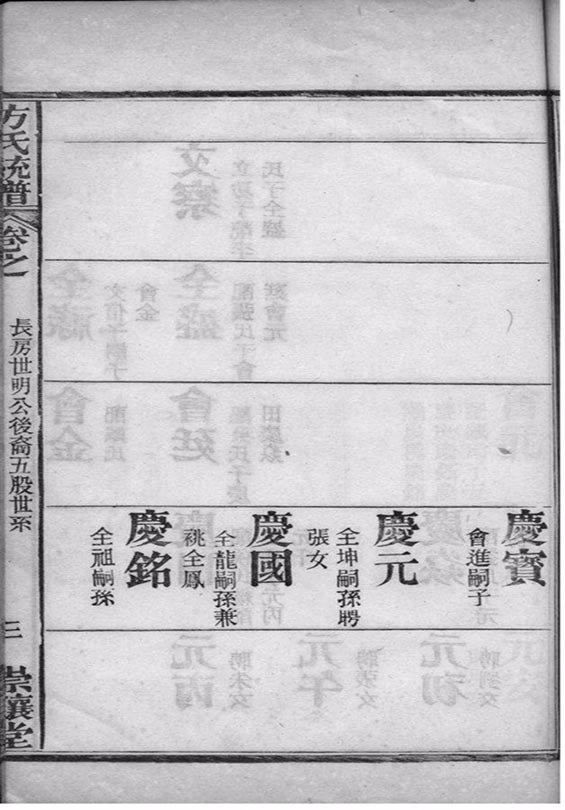 慶賓
會進嗣子
慶元
全坤嗣孫聘
張女
慶國
全龍嗣孫兼
祧全鳳
慶銘
全祖嗣孫
方氏統譜
卷之一
長房世明公後裔五股世系
三
崇讓堂